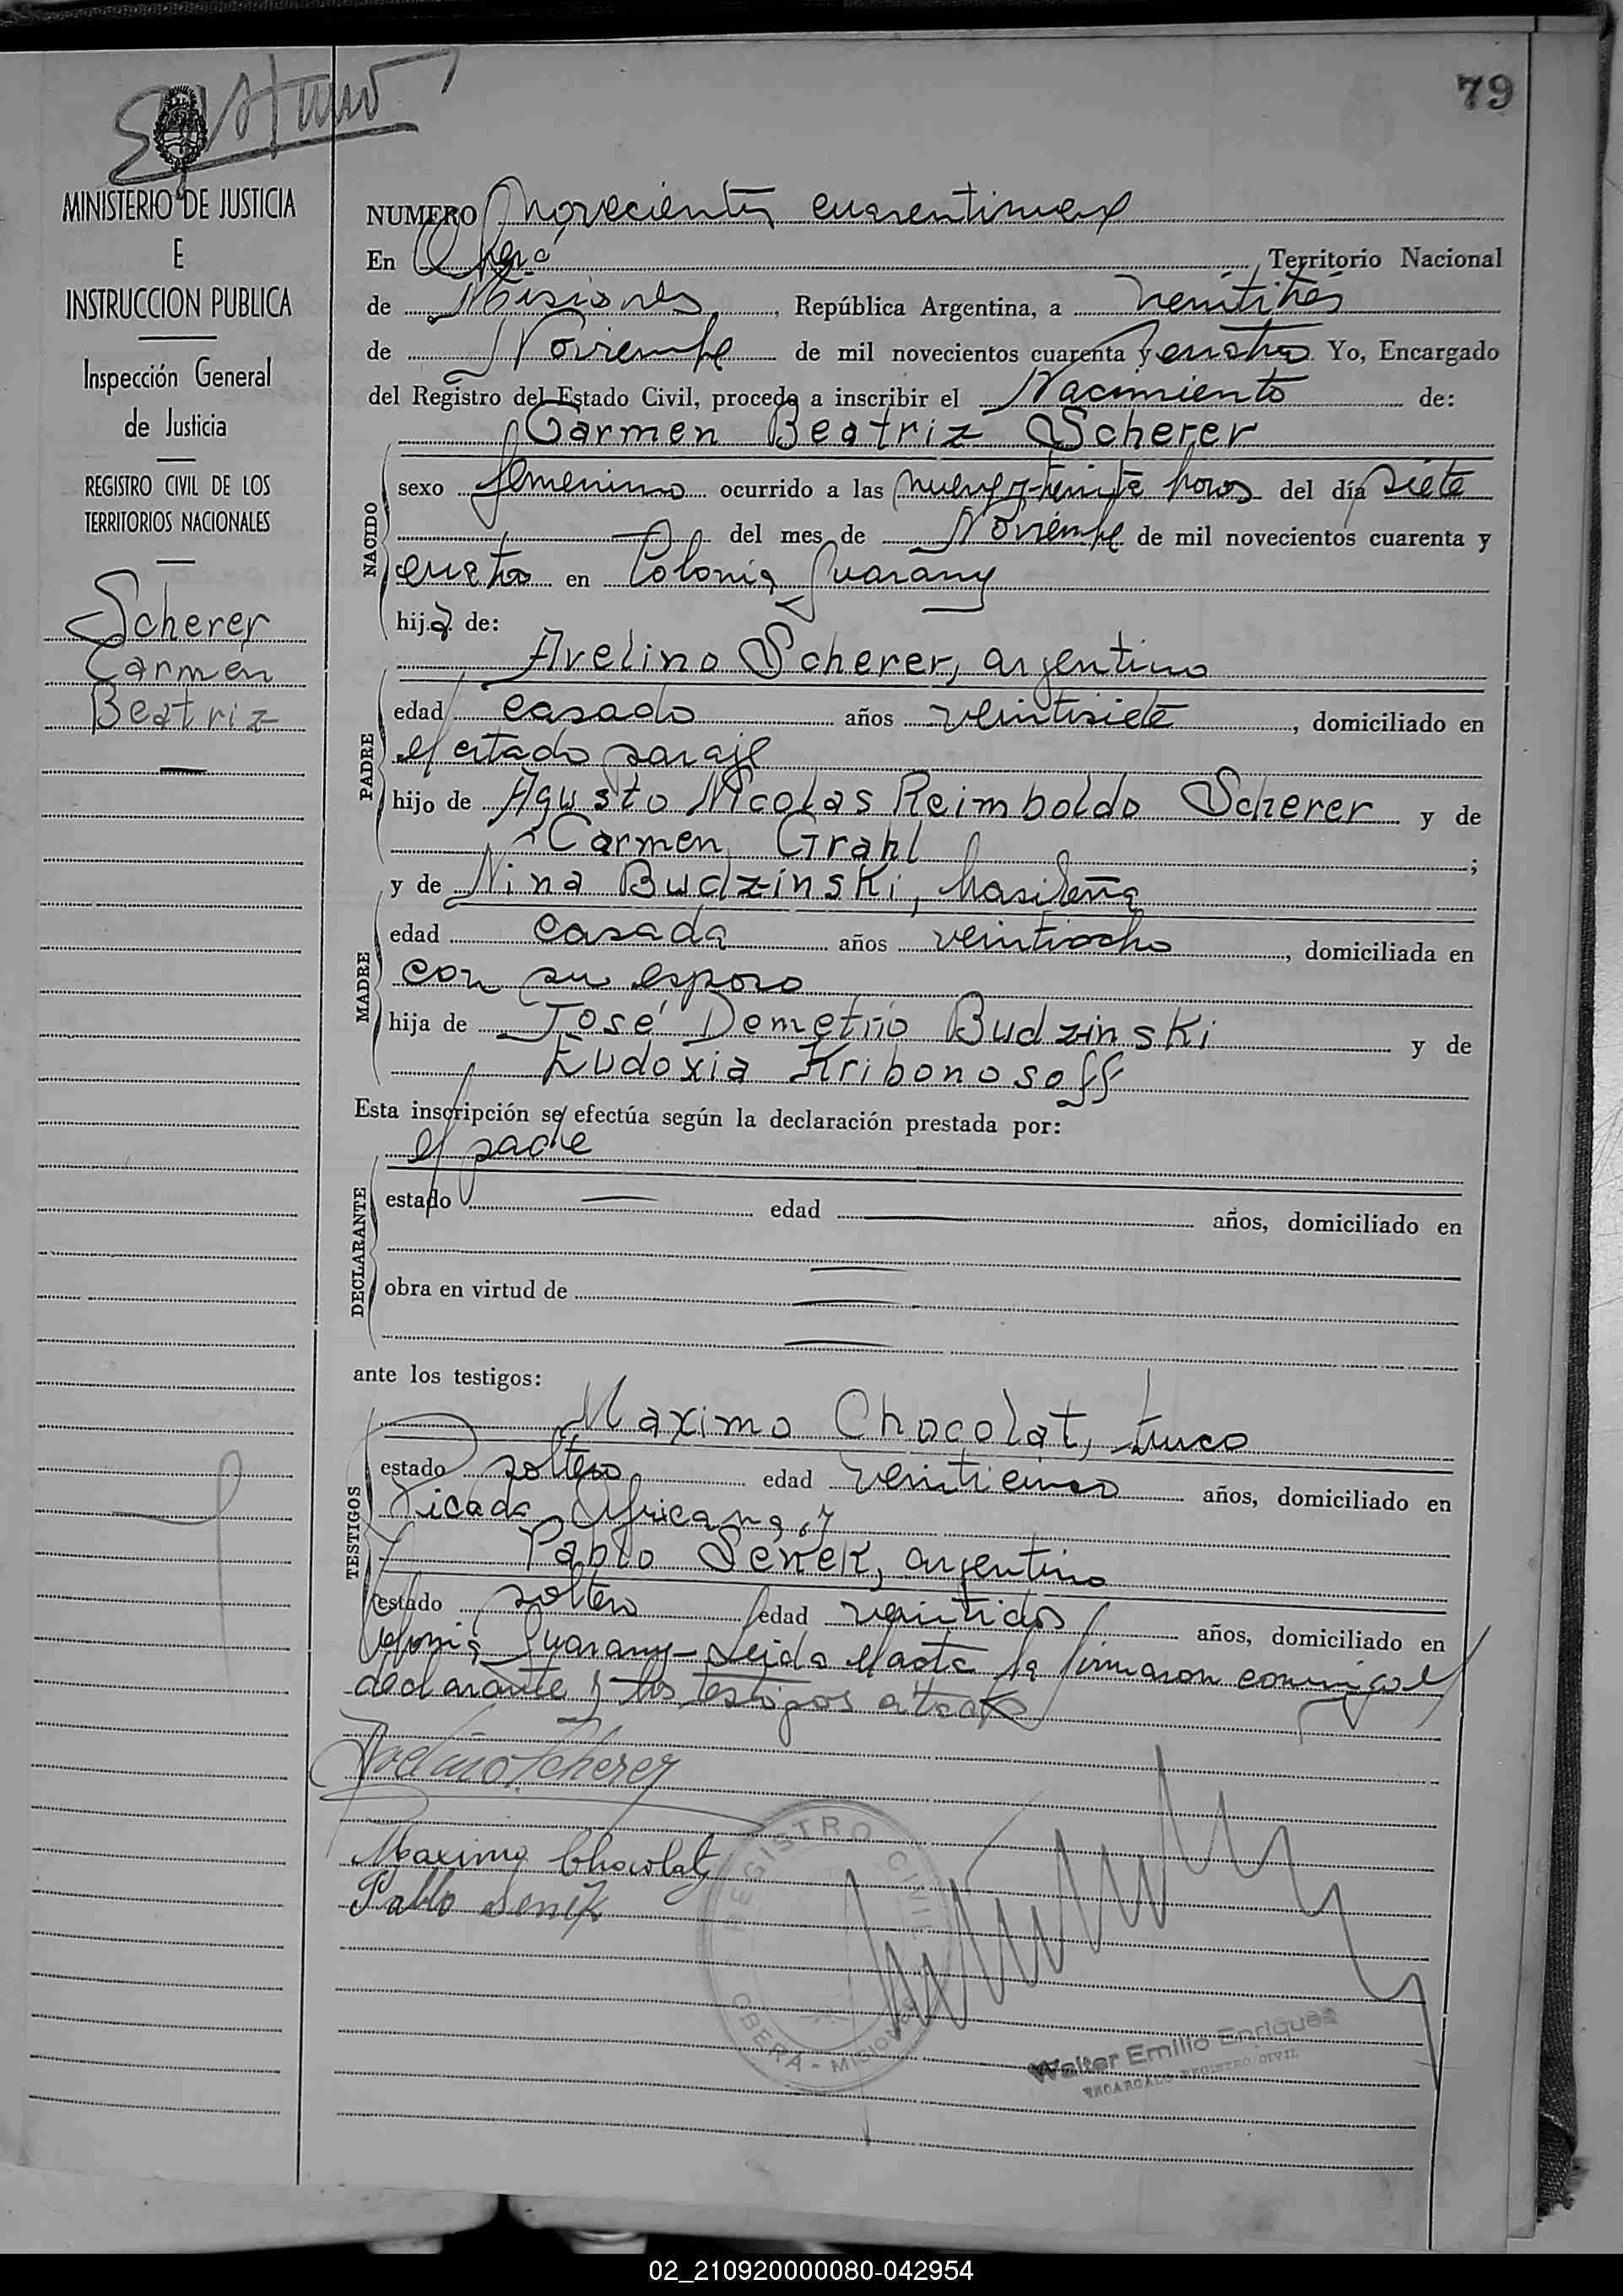 79
MINISTERIO DE JUSTICIA
E
INSTRUCCION PUBLICA
Inspección General
de Justicia
REGISTRO CIVIL DE LOS
TERRITORIOS NACIONALES
Scherer
Carmen
Beatriz
NUMERO novecientos
En Oberá, Territorio Nacional
de Misiones, República Argentina, a veintitrés
de Noviembre de mil novecientos cuarenta y cuatro. Yo, Encargado
del Registro del Estado Civil, procedo a inscribir el Nacimiento de:
Carmen Beatriz Scherer
NACIDO
sexo femenino ocurrido a las nueve y treinta horas del día siete
del mes de Noviembre de mil novecientos cuarenta y
cuatro en Colonia Guarany
hija de:
Avelino Scherer, argentino
PADRE
edad casado años veintisiete, domiciliado en
el citado paraje
hijo de Agusto Nicolas Reimboldo Scherer y de
Carmen Grahl;
y de Nina Budzinski, brasileña
MADRE
edad casada años veintiocho, domiciliada en
con su esposo
hija de José Demetrio Budzinski y de
Eudoxia Kribonosoff
Esta inscripción se efectúa según la declaración prestada por:
el padre
DECLARANTE
estado — edad — años, domiciliado en
—
obra en virtud de —
—
ante los testigos:
Maximo Chocolat, turco
TESTIGOS
estado soltero edad veinticinco años, domiciliado en
Picada Africana, y
Pablo Senek, argentino
estado soltero edad veintidos años, domiciliado en
Colonia Guarany - Leida el acta la firmaron conmigo el
declarante y los testigos citados
Avelino Scherer
Maximo Chocolat
Pablo Senek
REGISTRO CIVIL
OBERA - MISIONES
Walter Emilio Enriques
ENCARGADO REGISTRO CIVIL
02_210920000080-042954